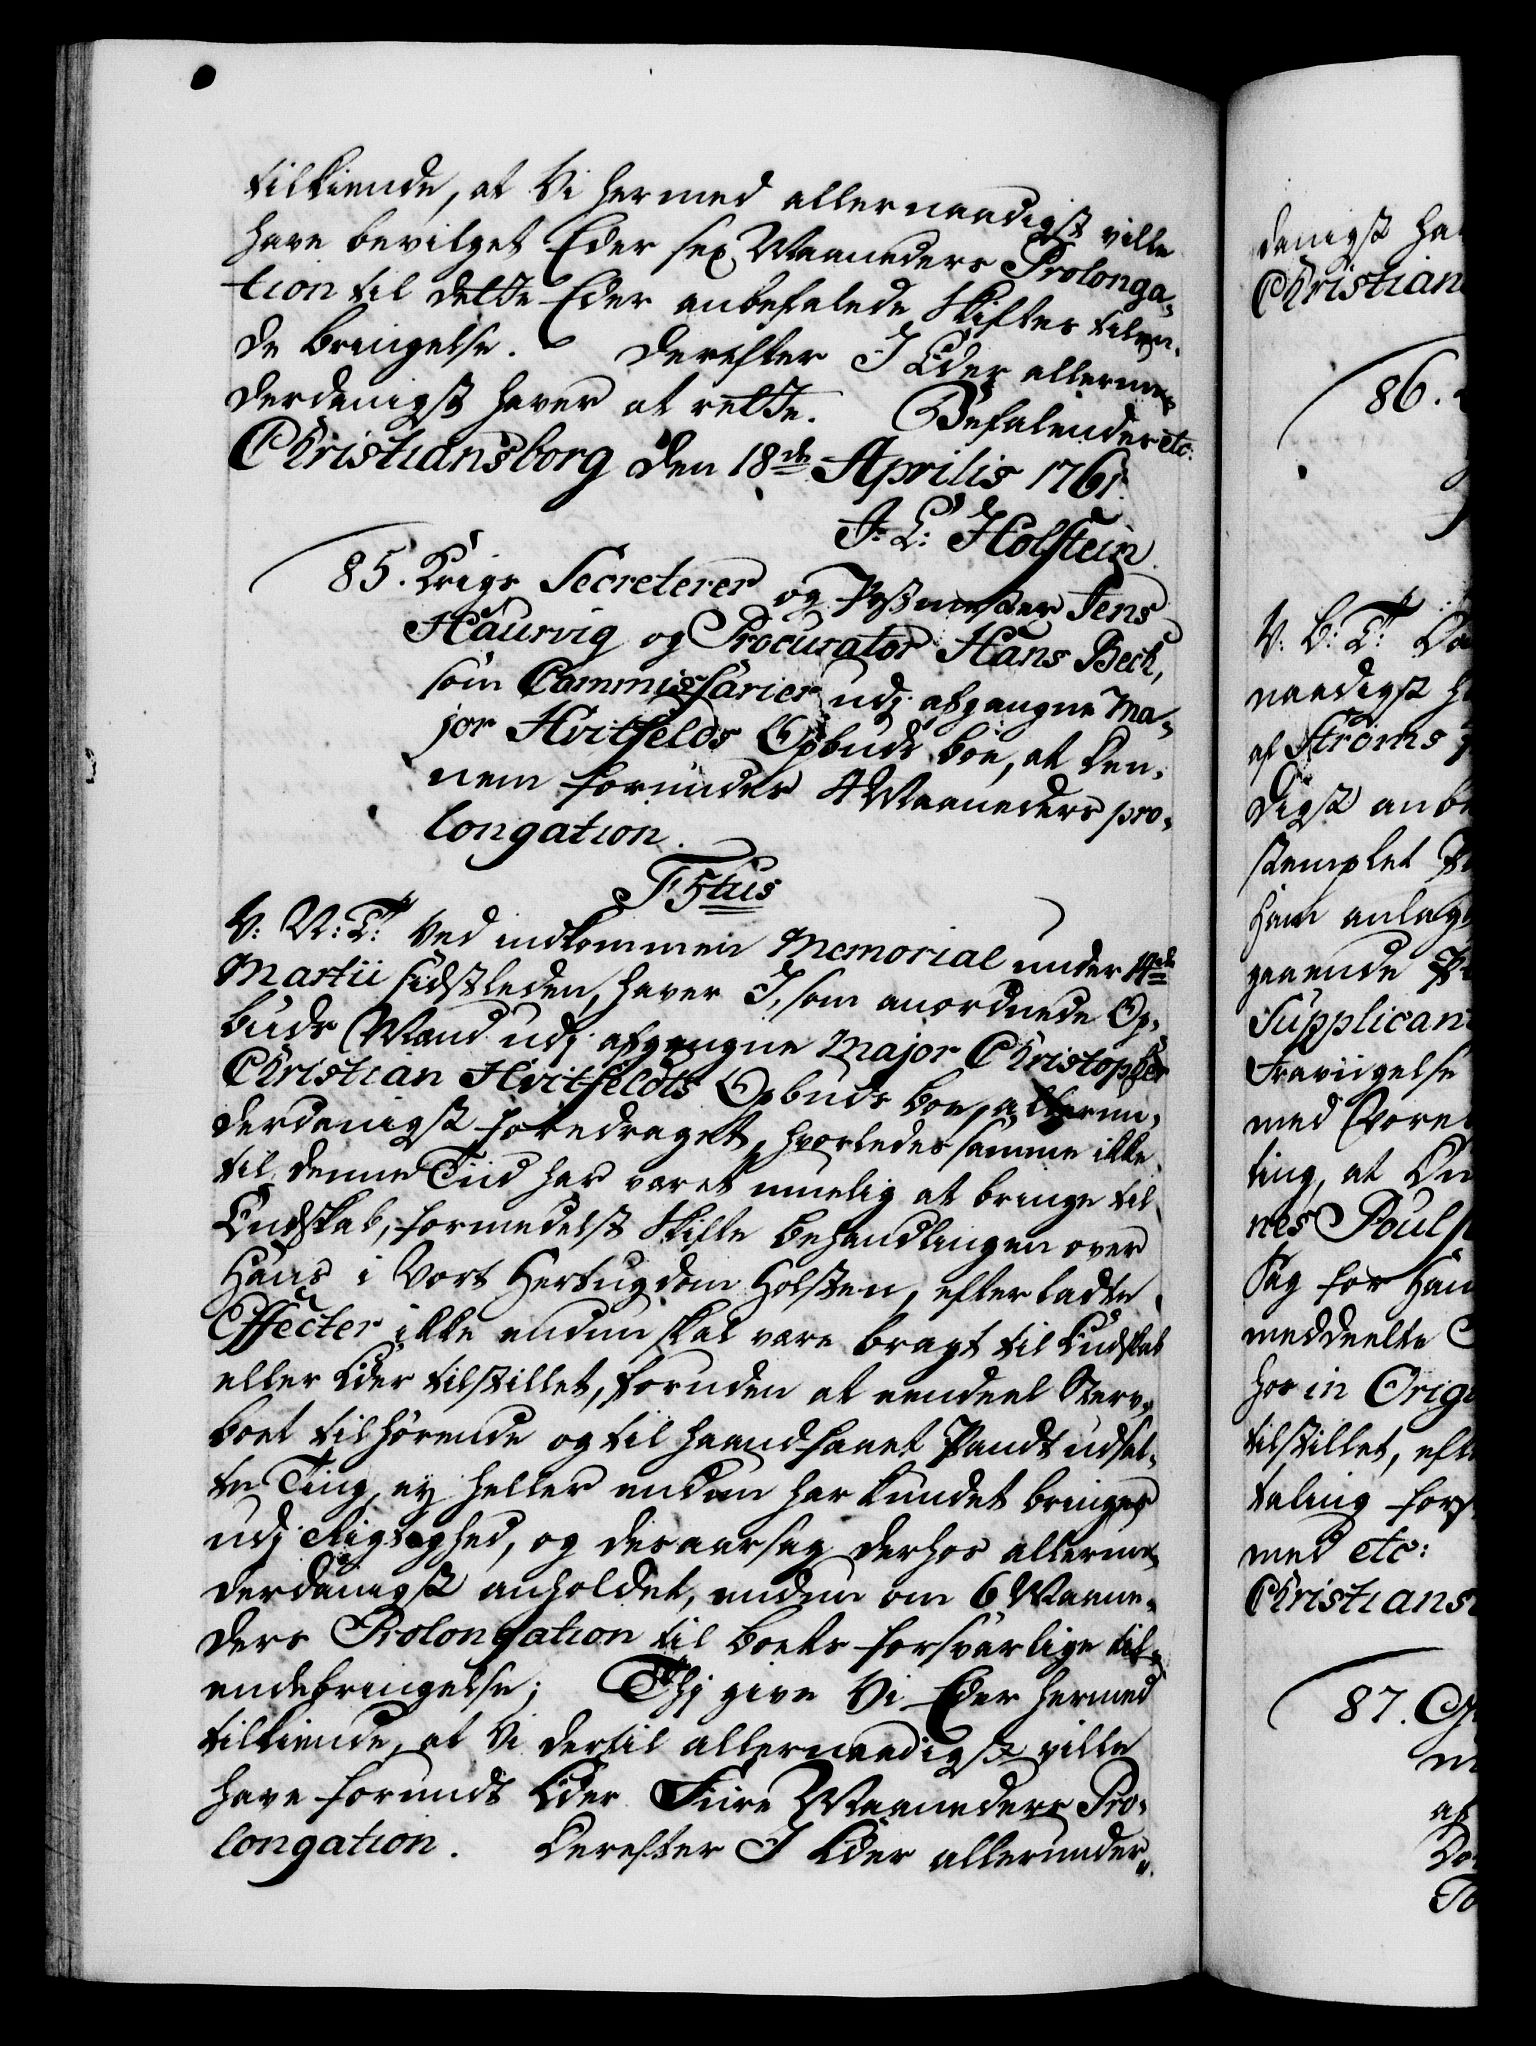 tilkiende, at Vi hermed allernaadigst ville
have bevilget Eder sex Maaneders Prolonga-
tion til dette Eder anbefalede Skiftes tilen-
de bringelse. Derefter I Eder allerun-
derdanigst haver at rette. Befalendes etc:
Christiansborg den 18de Aprilis 1761.
J. L: Holstein.
85. Krigs Secreterer og Postmester Jens
Haurvig og Procurator Hans Bech,
som Commissarier udj afgangne Ma-
jor Hvitfelds Opbuds boe, at den-
nem forundes 4 Maaneders pro-
longation.
F 5tus
V: N: T: Ved indkommen Memorial under 14de
Martii sidstleden, haver I, som anordnede Op-
buds Mænd udj afgangne Major Christopher
Christian Hvitfeldts Opbuds boe, allerun-
derdanigst foredraget, hvorledes samme ikke
til denne Tiid har været muelig at bringe til
Endskab, formedelst Skifte behandlingen over
Hans i Vort Hertugdom Holsten, efterladte
Effecter ikke endnu skal være bragt til Endskab
eller Eder tilstillet, foruden at eendeel Sterv-
boet tilhørende og til haandfaaet Pandt udsat-
te Ting, ey heller endnu har kundet bringes
udj Rigtighed, og desaarsag derhos allerun-
derdanigst anholdet, endnu om 6 Maane-
ders Prolongation til boets forsvarlige til-
endebringelse; Thj give Vi Eder hermed
tilkiende, at Vi dertil allernaadigst ville
have forundt Eder Fiire Maaneders Pro-
longation. Derefter I Eder allerunder-
danigst ha
Christian
86.
V: B: T:
naadigst h
af Strøms
digst anbe
stemplet
Ham anlag
gaaende
Supplican
Fravigelse
med Vore
ting, at
nes Pouls
Sag for Ham
meddeelte
hos in Orig
tilstillet, eft
taling fors
med etc:
Christians
87.
af